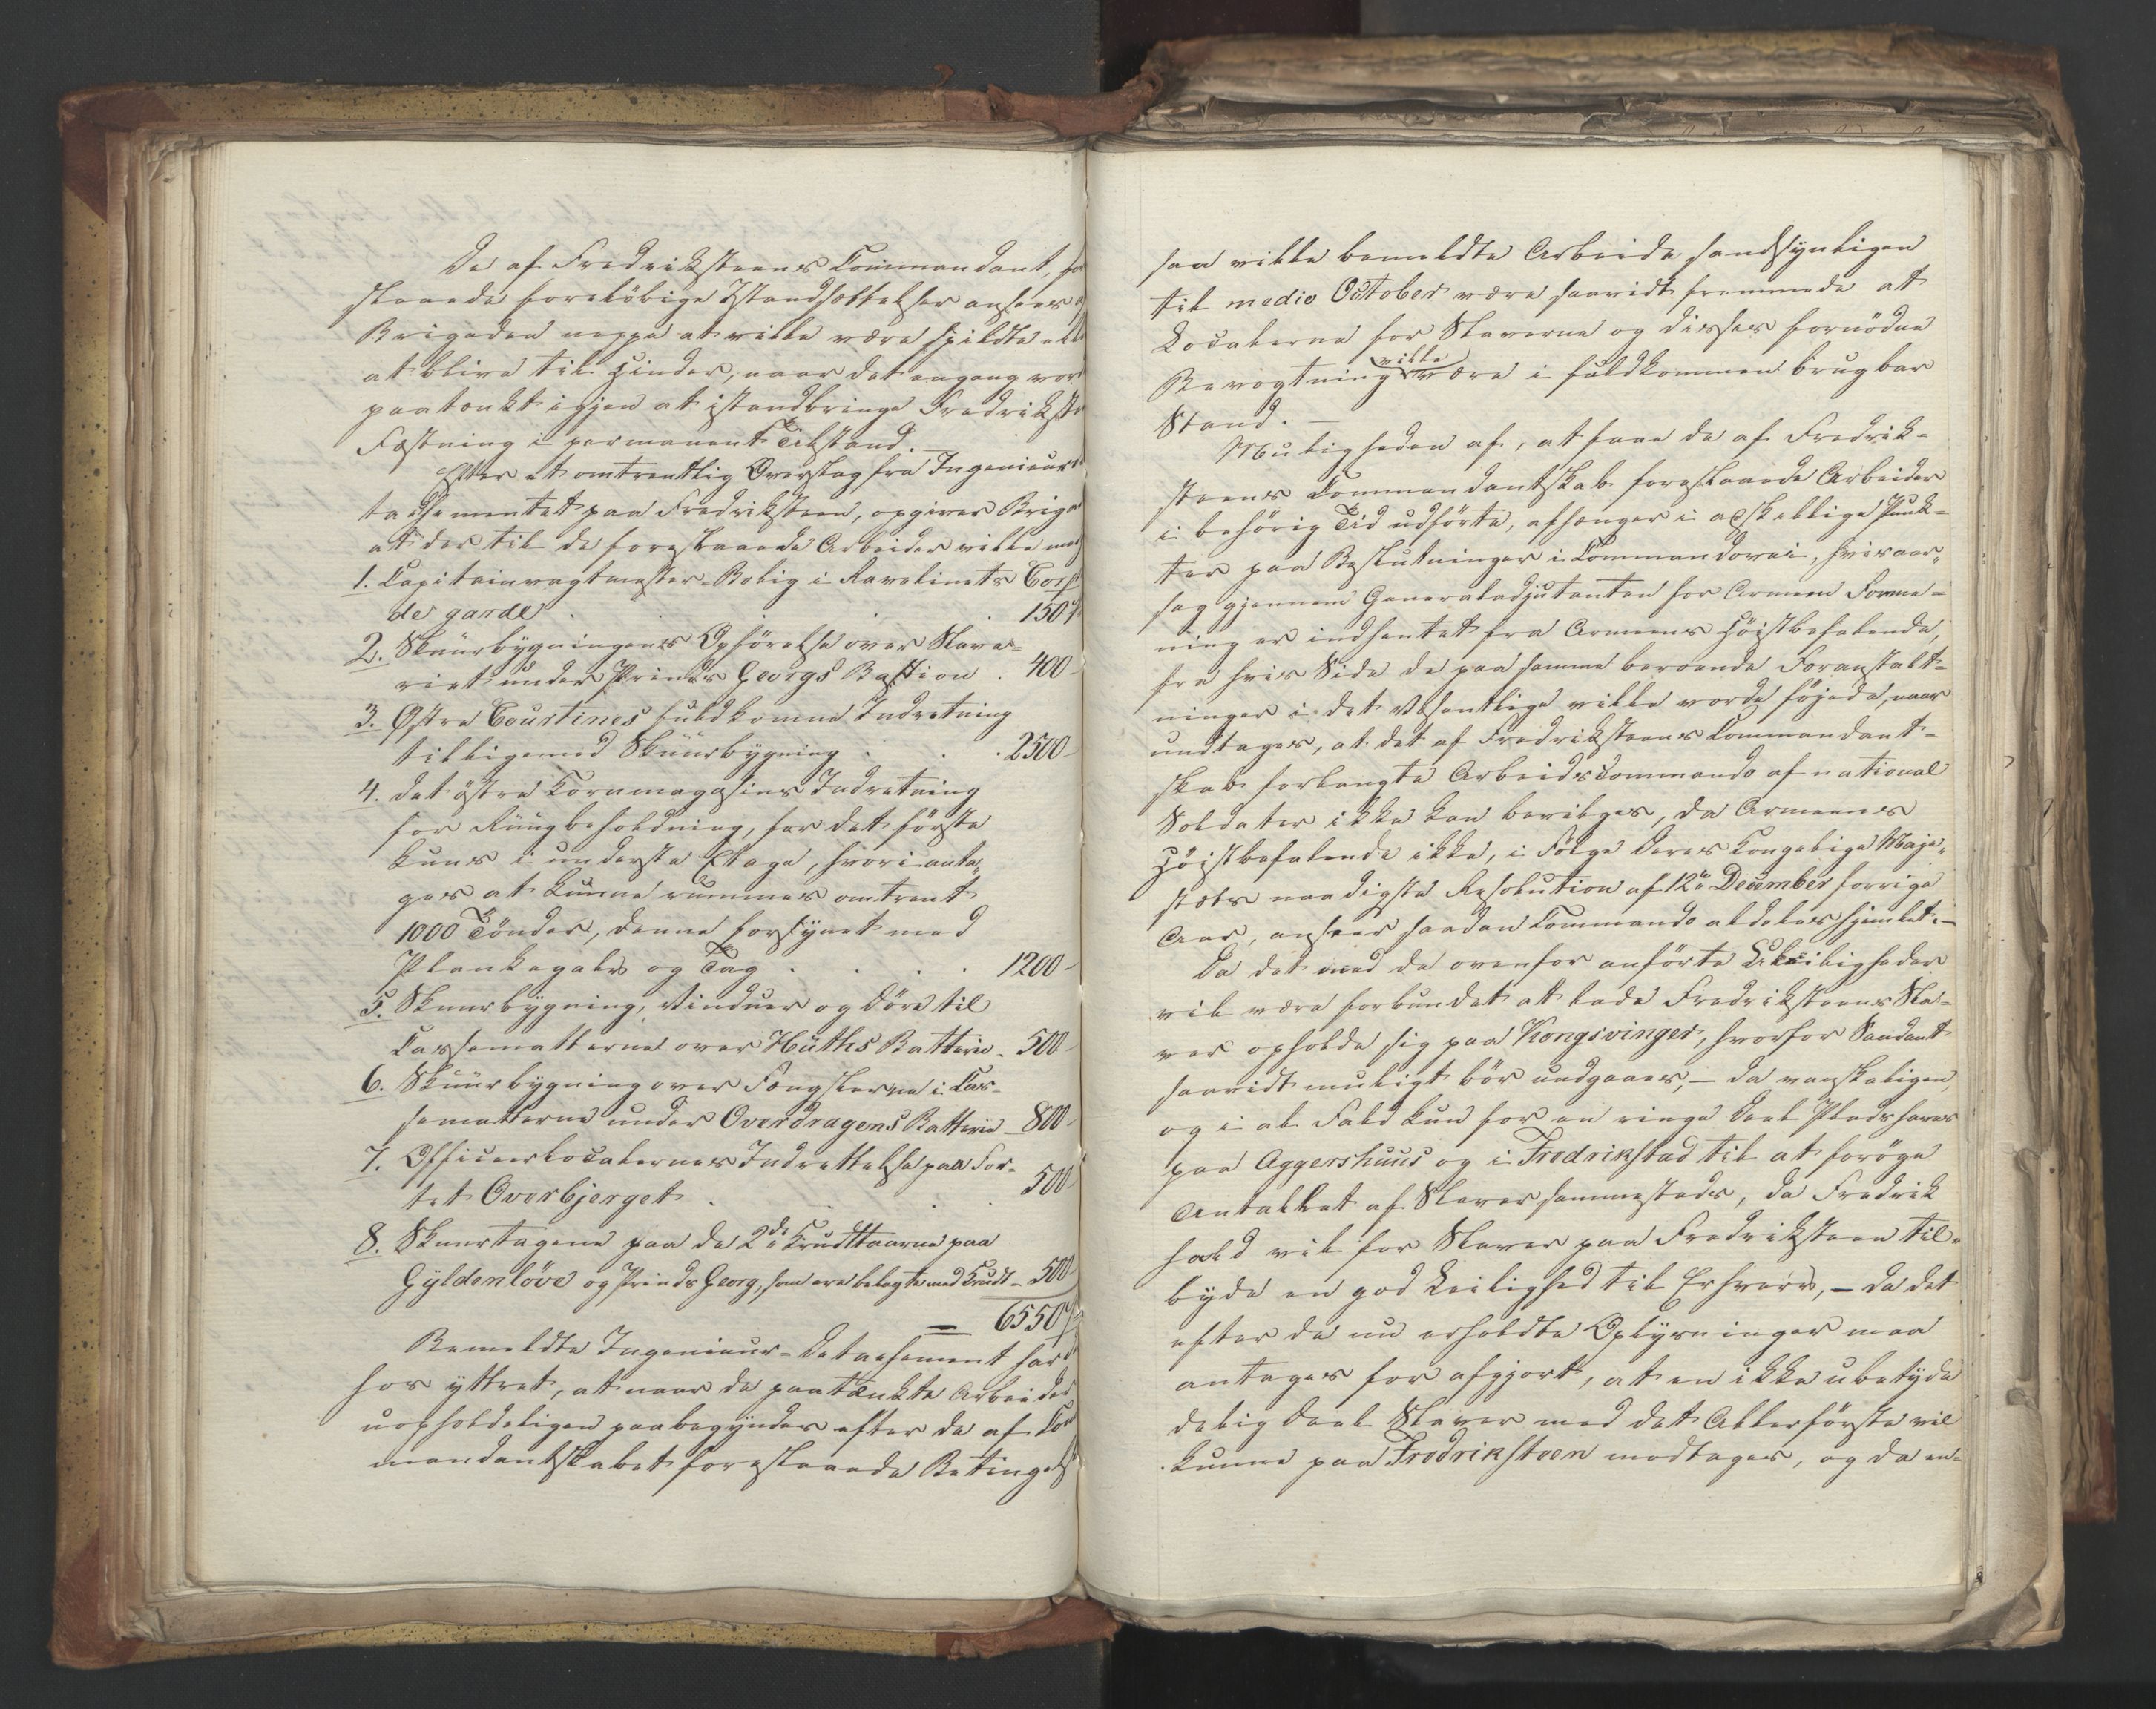 De af Fredrikssteens Commandant, fo
slaaede foreløbige Istandsættelser ansees a
Brigaden neppe at ville være spildte ell
at blive til Hinder, naar det engang vor
paatænkt igjen at istandbringe Fredrikste
Fæstning i permanent Tilstand.
Efter et omtrentlig Overslag fra Ingenieurde
taschementet paa Fredriksteen, opgiver Briga
at der til de foreslaaede Arbeider ville med
1. Capitainvagtmester-Bolig i Ravelinets Corps
de garde . . . 150
2. Skuurbygningens Opførelse over Slave-
riet under Prinds Georgs Bastion . 400-
3. Østre Courtines fuldkomne Indretning
tilligemed Skuurbygning . . . 2500-
4. Det østre Kornmagasins Indretning
for Rüügbeholdning, for det første
kuns i underste Etage, hvori anta-
ges at kunne rummes omtrent
1000 Tønder, denne forsynet med
Plankegulv og Tag . . . . 1200-
5. Skuurbygning, Vinduer og Døre til
Cassematterne over Hüths Batterie - 500-
6. Skuurbygning over Fængslerne i Cas-
sematterne under Overdragens Batterie - 800-
7. Officeerlocalernes Indrettelse paa For-
tet Overbjerget . . . 500-
8. Skuurtagene paa de 2de Krudttaarne paa
Gyldenløve og Prinds Georg, som ere belagte med Krudt - 500-
= 6550
Bemeldte Ingenieur-Detachement har d
hos yttret, at naar de paatænkte Arbeider
uopholdeligen paabegyndes efter de af Com
mandantskabet foreslaaede Betingels
saa ville bemeldte Arbeide sandsynligen
til medio October være saavidt fremmede at
Localerne for Slaverne og disses fornødne
ville
Bevogtning være i fuldkommen brugbar
Stand. —
Muligheden af, at faae de af Fredrik-
steens Commandantskab foreslaaede Arbeider
i behørig Tid udførte, afhænger i adskillige Punk-
ter paa Beslutninger i Commandovei, hvisaar-
sag gjennem Generaladjutanten for Armeen Forme-
ning er indhentet fra Armeens Høistbefalende,
fra hvis Side de paa samme beroende Foranstalt-
ninger i det Væsentlige ville vorde føjede, naar
undtages, at det af Fredriksteens Commandant-
skab forlangte Arbeidscommando af national
Soldater ikke kan bevilges, da Armeens
Høistbefalende ikke, i Følge Deres Kongelige Maje-
stæts naadigste Resolution af 12te December forrige
Aar, anseer saadan Commando aldeles hjemlet. —
Da det med de ovenfor anførte Leiligheder
vil være forbundet at lade Fredriksteens Sla-
ver opholde sig paa Kongsvinger, hvorfor Saadant
saavidt muligt bør undgaaes, — da vanskeligen,
og i al Fald kun for en ringe Deel Plads haves
paa Aggershuus og i Fredrikstad til at forøge
Antallet af Slaver sammesteds, da Fredrik
hald vil for Slaver paa Fredriksteen til-
byde en god Leilighed til Erhverv, — da det
efter de nu erholdte Oplysninger maa
antages for afgjort, at en ikke ubetyde
delig Deel Slaver med det Allerførste vil
kunne paa Fredriksteen modtages, og da en-